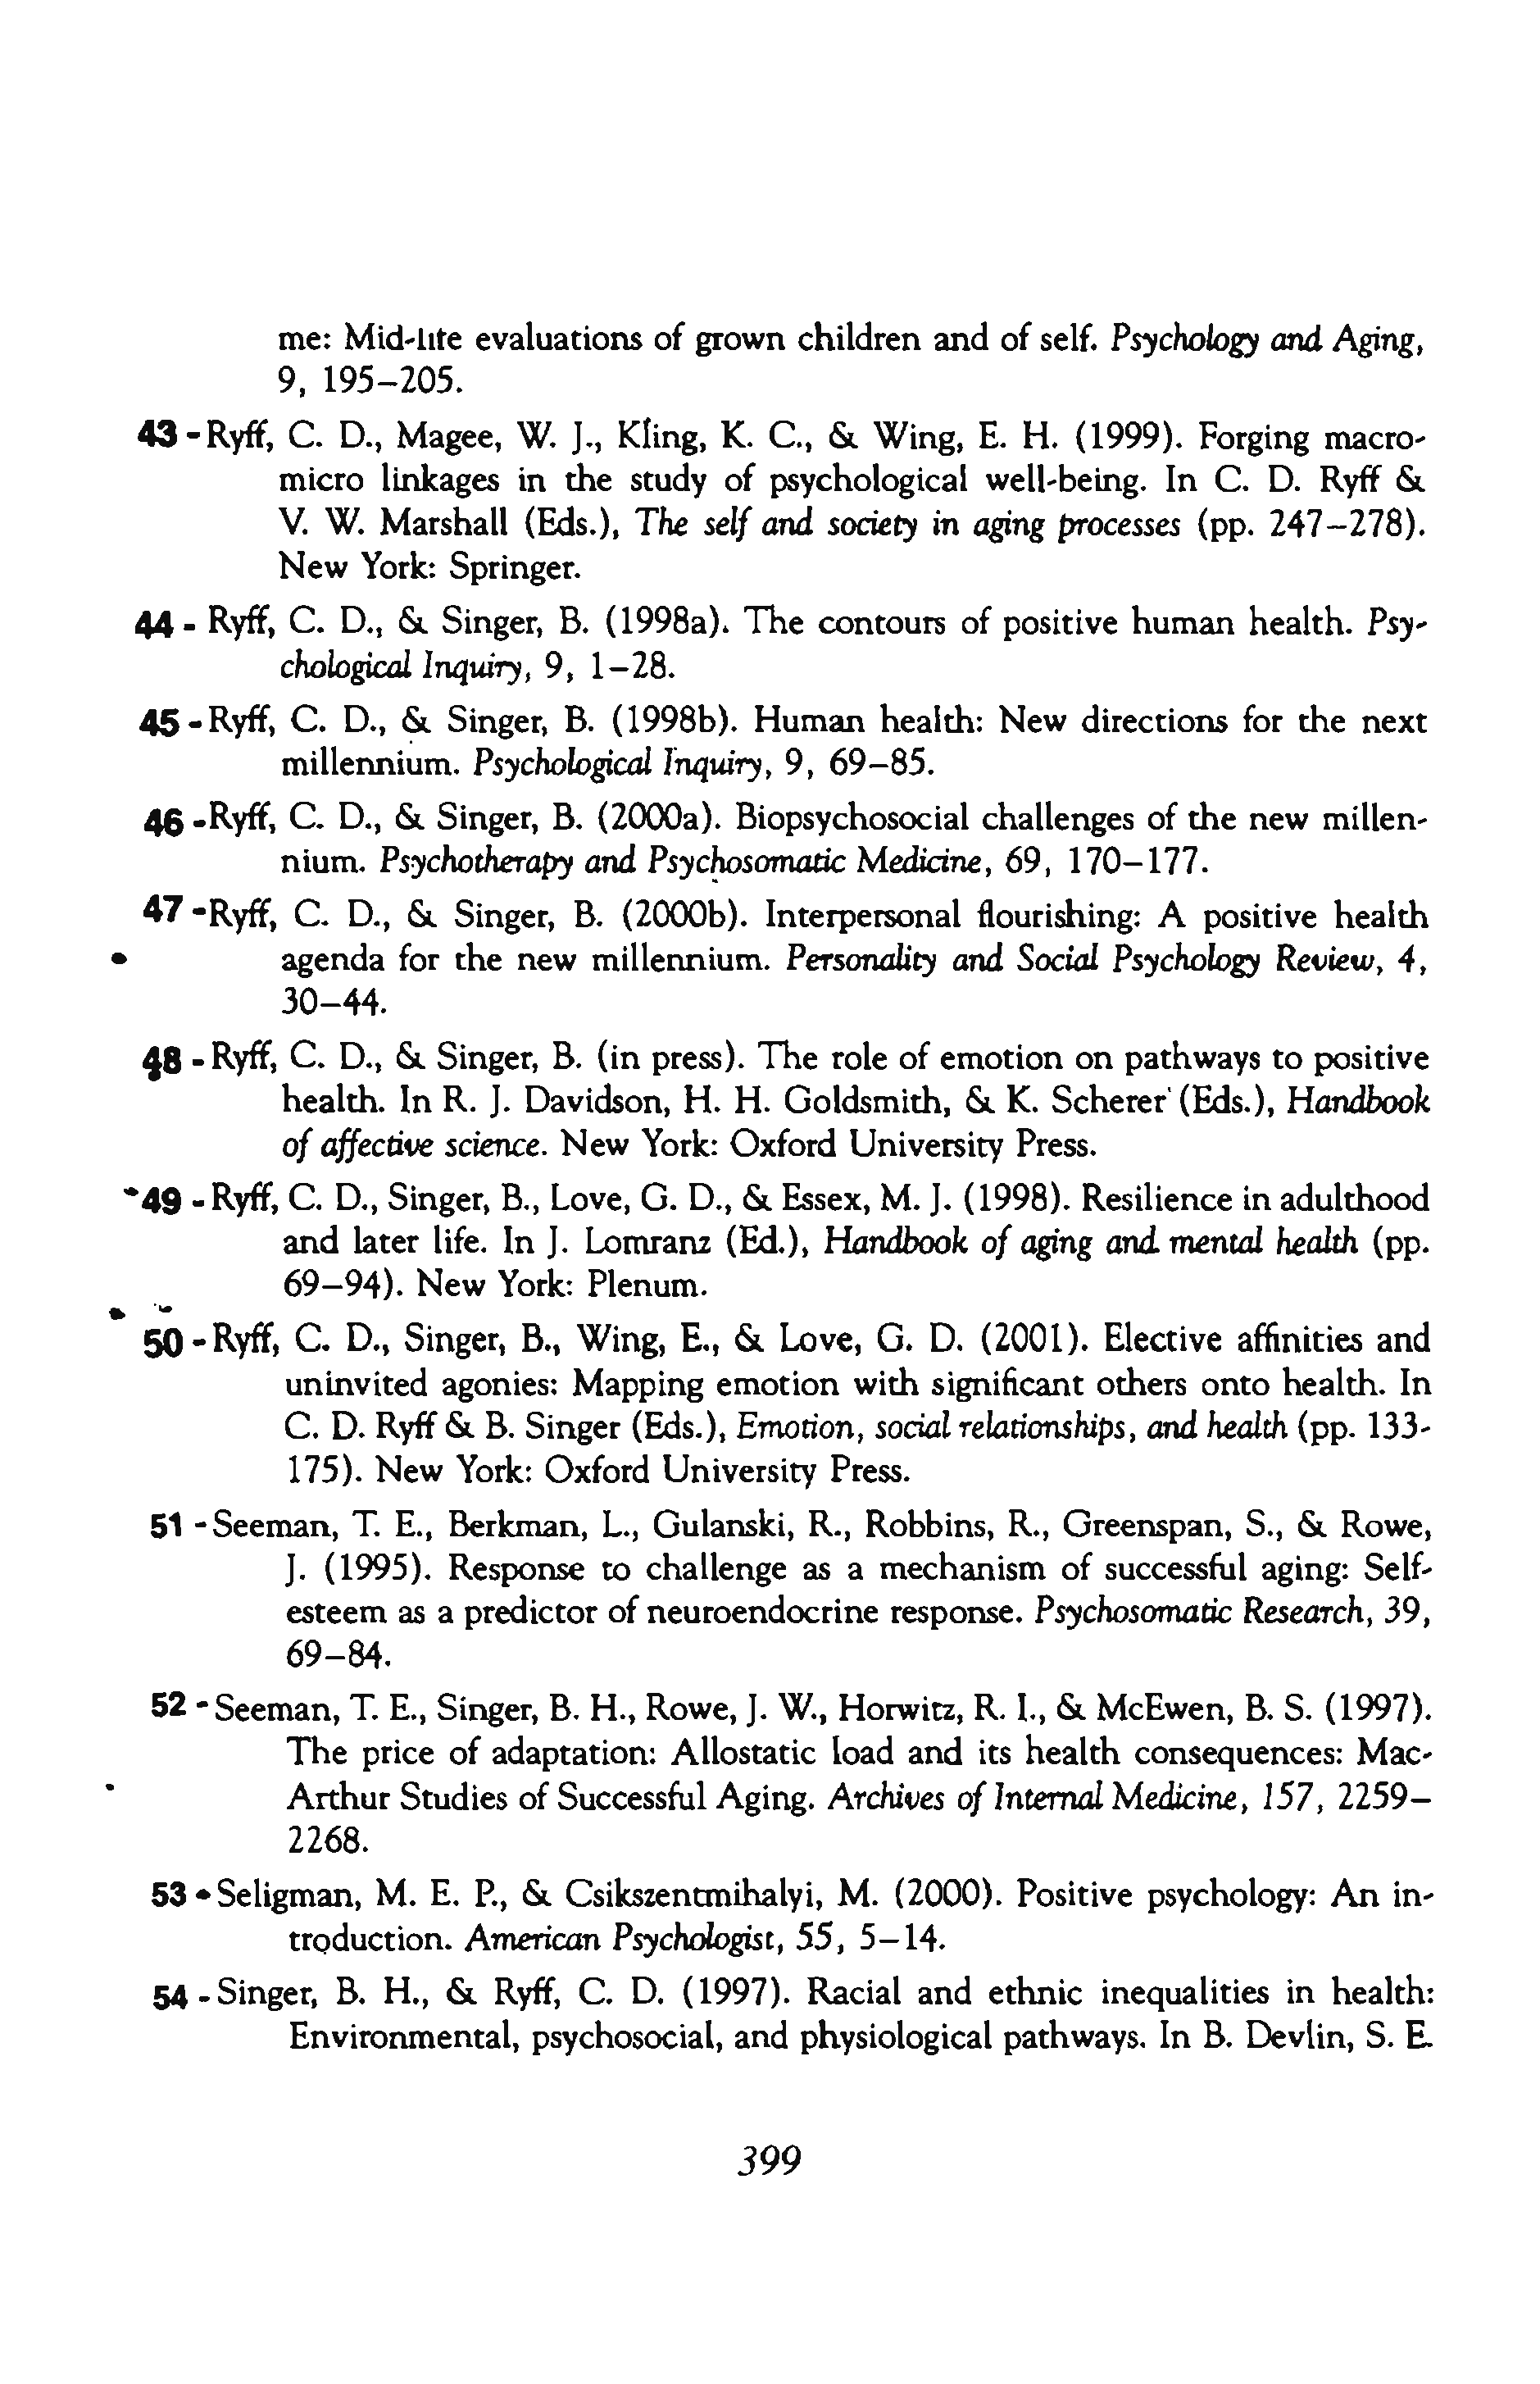 me: Mid-lite evaluations of grown children and of self. Psychology and Aging,
9, 195–205.
43 - Ryff, C. D., Magee, W. J., Kling, K. C., & Wing, E. H. (1999). Forging macro-
micro linkages in the study of psychological well-being. In C. D. Ryff &
V. W. Marshall (Eds.), The self and society in aging processes (pp. 247–278).
New York: Springer.
44 - Ryff, C. D., & Singer, B. (1998a). The contours of positive human health. Psy-
chological Inquiry, 9, 1–28.
45 - Ryff, C. D., & Singer, B. (1998b). Human health: New directions for the next
millennium. Psychological Inquiry, 9, 69–85.
46 - Ryff, C. D., & Singer, B. (2000a). Biopsychosocial challenges of the new millen-
nium. Psychotherapy and Psychosomatic Medicine, 69, 170–177.
47 - Ryff, C. D., & Singer, B. (2000b). Interpersonal flourishing: A positive health
agenda for the new millennium. Personality and Social Psychology Review, 4,
30–44.
48 - Ryff, C. D., & Singer, B. (in press). The role of emotion on pathways to positive
health. In R. J. Davidson, H. H. Goldsmith, & K. Scherer (Eds.), Handbook
of affective science. New York: Oxford University Press.
49 - Ryff, C. D., Singer, B., Love, G. D., & Essex, M. J. (1998). Resilience in adulthood
and later life. In J. Lomranz (Ed.), Handbook of aging and mental health (pp.
69–94). New York: Plenum.
50 - Ryff, C. D., Singer, B., Wing, E., & Love, G. D. (2001). Elective affinities and
uninvited agonies: Mapping emotion with significant others onto health. In
C. D. Ryff & B. Singer (Eds.), Emotion, social relationships, and health (pp. 133-
175). New York: Oxford University Press.
51 - Seeman, T. E., Berkman, L., Gulanski, R., Robbins, R., Greenspan, S., & Rowe,
J. (1995). Response to challenge as a mechanism of successful aging: Self-
esteem as a predictor of neuroendocrine response. Psychosomatic Research, 39,
69–84.
52 - Seeman, T. E., Singer, B. H., Rowe, J. W., Horwitz, R. I., & McEwen, B. S. (1997).
The price of adaptation: Allostatic load and its health consequences: Mac-
Arthur Studies of Successful Aging. Archives of Internal Medicine, 157, 2259–
2268.
53 - Seligman, M. E. P., & Csikszentmihalyi, M. (2000). Positive psychology: An in-
troduction. American Psychologist, 55, 5–14.
54 - Singer, B. H., & Ryff, C. D. (1997). Racial and ethnic inequalities in health:
Environmental, psychosocial, and physiological pathways. In B. Devlin, S. E.
399